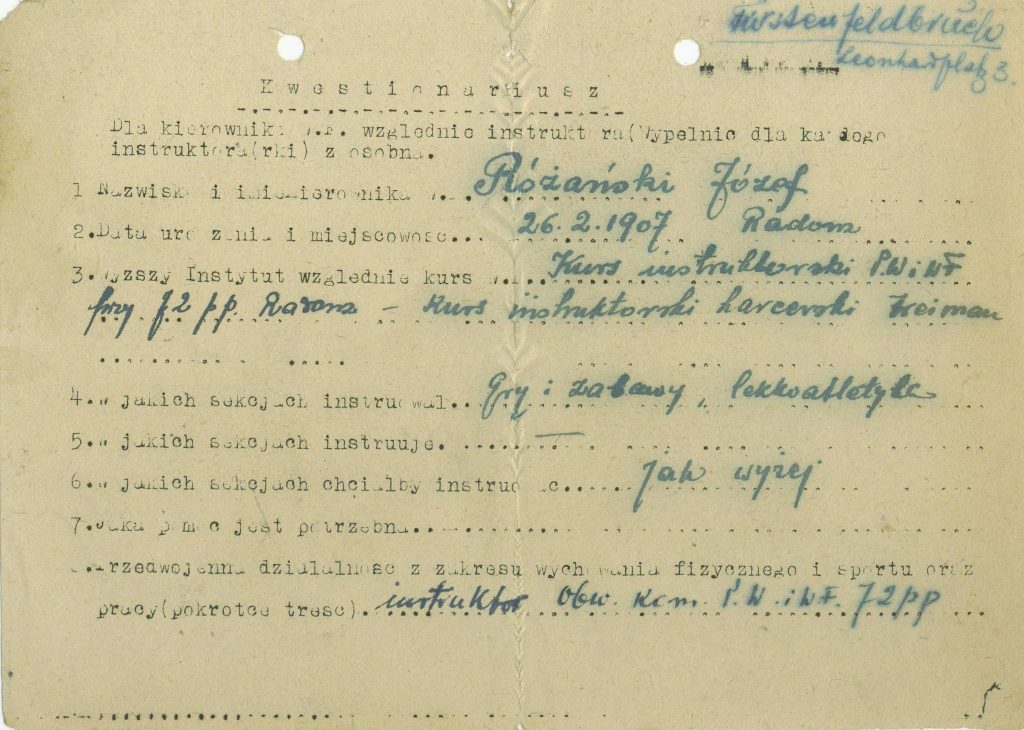 Fürstenfeldbruck
Leonhardplatz 3.
Kwestionariusz
Dla kierownika W.F. względnie instruktora(Wypelnic dla kazdego
instruktora(rki) z osobna.
1 Nazwisko i imie kierownika W.... Różański Józef
2.Data urodzenia i miejscowosc... 26.2.1907 Radom
3.Wyzszy Instytut względnie kurs W.F. Kurs instruktorski P.W i WF
przy 72 pp. Radom – Kurs instruktorski harcerski
4.W jakich sekcjach instruowal.. Gry i zabawy, lekkoatletyka
5.W jakich sekcjach instruuje. —
6.W jakich sekcjach chcialby instruowac... jak wyżej
7.Jaka pomoc jest potrzebna..
8.Przedwojenna dzialalnosc z zakresu wychowania fizycznego i sportu oraz
pracy(pokrotce tresc). instruktor Obw. Kom. P.W. i WF. 72 pp